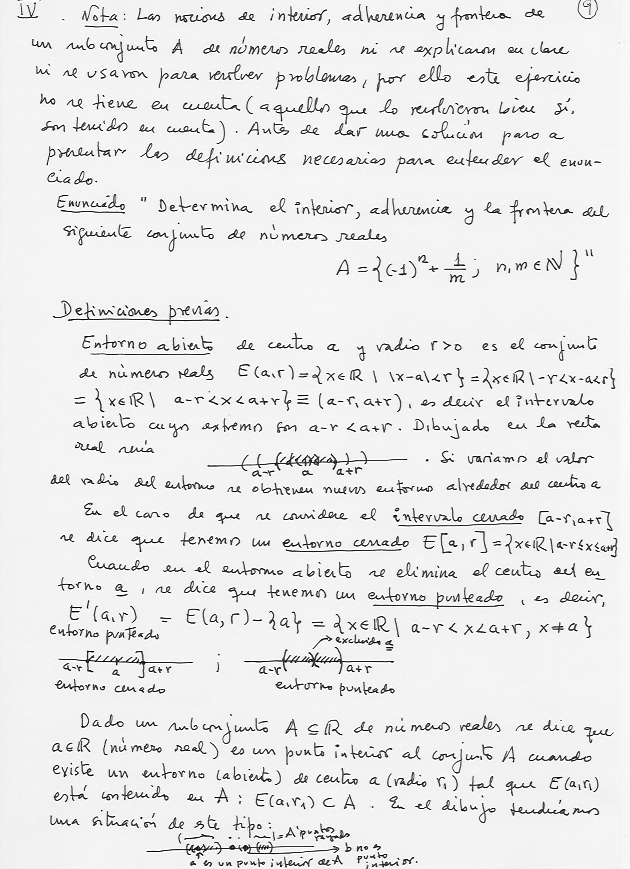 IV. Nota: Las nocions de interior, adherencia y frontera de
9
un subconjunto A de números reales ni se explicaron en clase
ni se usaron para resolver problemas, por ello este ejercicio
no se tiene en cuenta (aquellos que lo resolvieron bien sí,
son tenidos en cuenta). Antes de dar una solución paso a
presentar las definicions necesarias para entender el enun-
ciado.
Enunciado "Determina el interior, adherencia y la frontera del
siguiente conjunto de números reales
A = {(-1)^n + 1/m ; n, m ∈ ℕ}"
Definiciones previas.
Entorno abierto de centro a y radio r>0 es el conjunto
de números reals E(a,r) = {x∈ℝ | |x-a|<r} = {x∈ℝ | -r<x-a<r}
= {x∈ℝ | a-r<x<a+r} ≡ (a-r, a+r), es decir el intervalo
abierto cuyos extremos son a-r < a+r. Dibujado en la recta
real sería
a-r a a+r
. Si variamos el valor
del radio del entorno se obtienen nuevos entornos alrededor del centro a
En el caso de que se considere el intervalo cerrado [a-r, a+r]
se dice que tenemos un entorno cerrado E[a,r] = {x∈ℝ | a-r≤x≤a+r}
Cuando en el entorno abierto se elimina el centro del en
torno a, se dice que tenemos un entorno punteado, es decir,
E'(a,r) = E(a,r) - {a} = {x∈ℝ | a-r < x < a+r, x≠a}
entorno punteado
excluido a
a-r a a+r ; a-r a+r
entorno cerrado entorno punteado
Dado un subconjunto A ⊆ ℝ de números reales se dice que
a∈ℝ (número real) es un punto interior al conjunto A cuando
existe un entorno (abierto) de centro a (radio r₁) tal que E(a,r₁)
está contenido en A; E(a,r₁) ⊂ A. En el dibujo tendríamos
una situación de este tipo:
= A puntos
rayados
b no es
punto
interior.
a es un punto interior de A